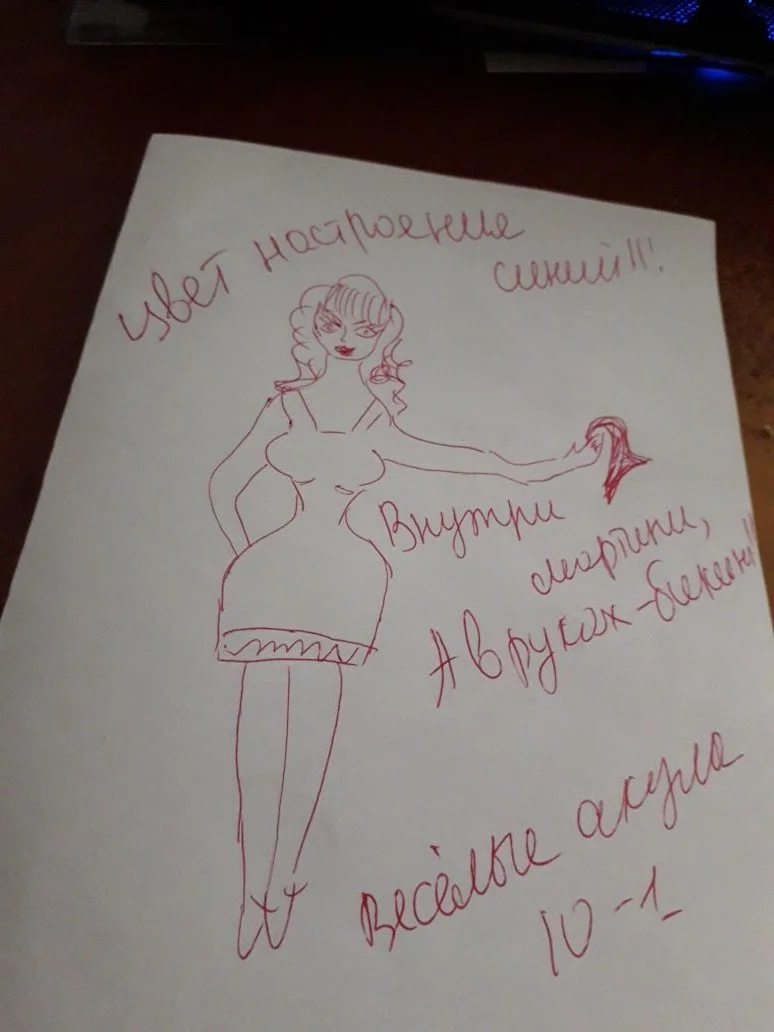 цвет настроения
синий!!!
Внутри
мартини,
А в руках - бикини!!
Весёлые акула
10-1